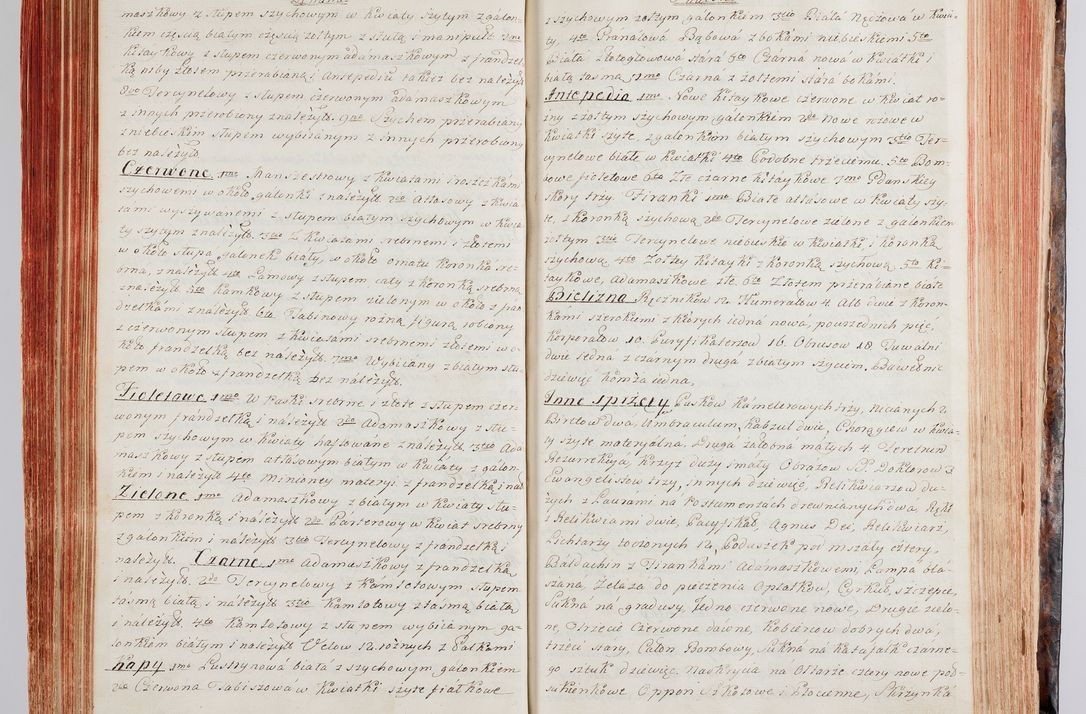 maszkowy z słupem szychowym w kwiaty szytym z galon-
kiem częścią białym częścią żółtym z stułą i manipuł: 7mo
kitaykowy z słupem czerwonym adamaszkowym z frandzel
ką niby złotem przerabianą i Antepedium takież bez należyt:
8vo Tercynelowy z słupem czerwonym adamaszkowym
z innych przerobiony z należyt: 9no Szychem przerabiany
z niebieskim słupem wybiianym z innych przerobiony
bez należyt:
Czerwone 1mo Manszestrowy z kwiatami i rószczkami
szychowemi w około galonki z należyt: 2do Atłasowy z kwia-
tami wyszywanemi z słupem białym szychowym w kwia-
ty szytym z należyt: 3tio Z kwiatami srebrnemi i złotemi
w około słupa galonek biały, w około ornatu koronka sre-
brna, z należyt: 4to Lamowy z słupem cały z koronką srebrną
z należyt: 5to Kamkowy z słupem zielonym w około z fran
dzelkami z należyt: 6to Tabinowy rożną figurą robiony
z czerwonym słupem z kwiatami srebrnemi złotemi w o-
koło frandzelką bez należyt: 7mo Wybiiany z białym słu-
pem w około z frandzelką bez należyt:
Fioletowe 1mo W Paski srebrne i złote z słupem czer-
wonym frandzelką i należyt: 2do Adamaszkowy z słu-
pem szychowym w kwiaty haftowane z należyt: 3tio Ada
maszkowy z słupem atłasowym białym w kwiaty z galon-
kiem i należyt: 4to minioney materyi z frandzelką i nal:
Zielone 1mo Adamaszkowy z białym w kwiaty słu-
pem z koronką i należyt: 2do Parterowy w kwiat srebrny
z galonkiem i należyt: 3tio Tercynelowy z frandzelką i
należyt: Czarne 1mo Adamaszkowy z frandzelką
i należyt: 2do Tercynelowy z kamlotowym słupem
taśmą białą i należyt: 3tio kamlotowy z taśmą białą
i należyt: 4to kamlotowy z słupem wybiianym ga-
lonkiem białym i należyt: Velow 12. rożnych z Palkami
Kapy 1mo Lustrynowa biała z szychowym galonkiem
2do Czerwona Tabiszowa w kwiatki szyte fiałkowe
z szychowym żółtym galonkiem 3tio Biała Ręczowa w kwia-
ty. 4to Granatowa Bąbowa z bokami niebieskiemi 5to
Biała Złotogłowowa stara 6to Czarna nowa w kwiatki i
białą taśmą 7mo Czarna z żołtemi stara bokami.
Antepedia 1mo Nowe kitaykowe czerwone w kwiat ro-
żny z żółtym szychowym galonkiem 2do Nowe rożowe w
kwiatki szyte z galonkiem białym szychowym 3tio Ter-
cynelowe białe w kwiatki 4to Podobne trzeciemu. 5to Bom-
bowe fioletowe 6to Złe czarne kitaykowe 7mo Gdanskiey
skory trzy. Firanki 1mo Białe atłasowe w kwiaty szy-
te, z koronką szychową 2do Tercynelowe zielone z galonkiem
żółtym 3tio Tercynelowe niebieskie w kwiatki i koronką
szychową 4to Zołtey kitayki z koronką szychową 5to Ki-
taykowe, adamaszkowe złe. 6to Złotem przerabiane białe
Bielizna Ręcznikow 12. Humerałow 4. Alb dwie z koron-
kami szerokiemi z których iedna nowa, pouszednich pięć,
Korporałow 10. Puryfikaterzow 16. Obrusow 18. Tuwalni
dwie iedna z czarnym druga z białym szyciem. Bawełnic
dziewięć komża iedna,
Inne sprzęty Paskow kamelerowych trzy, niciannych 2.
Biretow dwa, Umbraculum, kabzul dwie, Chorągiew w kwia-
ty szyte materyalna, Druga żałobna małych 4. Feretrun
Rezurrekcya, krzyż duży smały Obrazow SS. Doktorow 3
Ewangelistow trzy, innych dziewięć, Relikwiarzow du-
żych z Laurami na Postumentach drewnianych dwa, Ręki
z Relikwiami dwie, Pacyfikał, Agnus Dei, Relikwiarz,
Lichtarzy toczonych 12, Poduszek pod mszały cztery,
Baldachin z Firankami Adamaszkowemi, Lampa bla-
szana Żelaza do pieczenia Opłatkow, Cyrkuł, szczepce,
Sukna na gradusy, Jedno czerwone nowe, Drugie zielo-
ne, Trzecie czerwone dawne, Kobiercow dobrych dwa,
trzeci stary, Całun Bombowy, Sukna na katafalk czarne-
go sztuk dziewięć, nadkrycia na Ołtarze cztery nowe pod-
sukienkowe Oppon siwotowe i Płocienne, Skrzynka